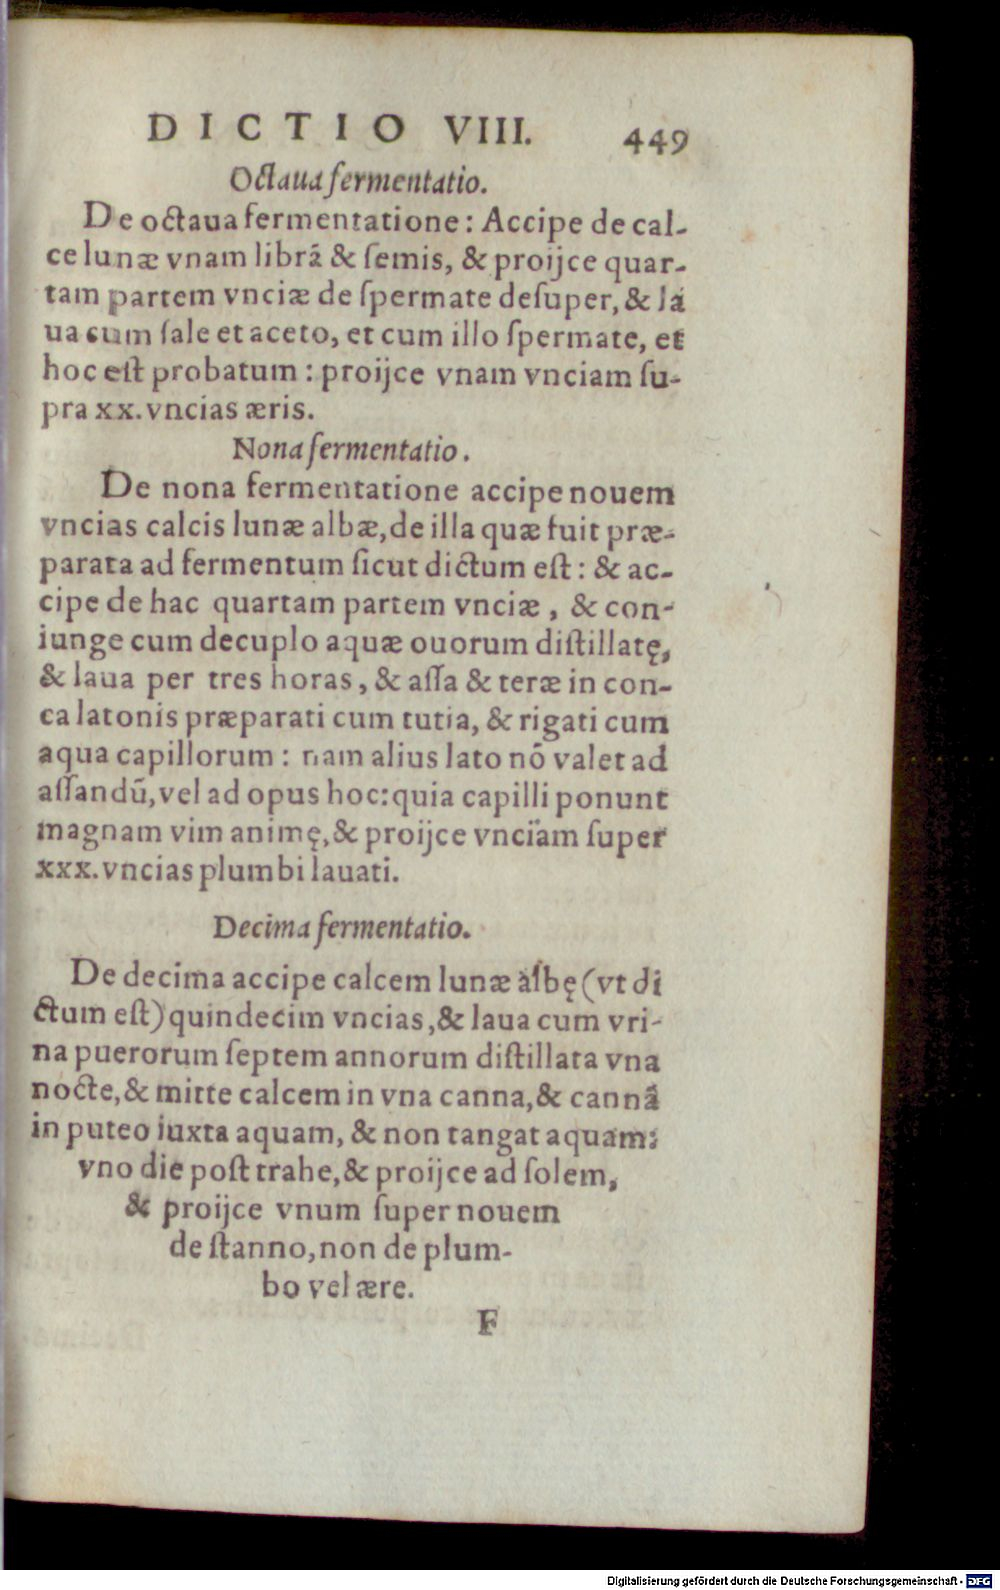 DICTIO VIII. 449
Octaua fermentatio.
De octaua fermentatione: Accipe de cal-
ce lunæ vnam librā & ſemis, & proijce quar-
tam partem vnciæ de ſpermate deſuper, & la
ua cum ſale et aceto, et cum illo ſpermate, et
hoc eſt probatum: proijce vnam vnciam ſu-
pra xx. vncias æris.
Nona fermentatio.
De nona fermentatione accipe nouem
vncias calcis lunæ albæ, de illa quæ fuit præ-
parata ad fermentum ſicut dictum eſt: & ac-
cipe de hac quartam partem vnciæ, & con-
iunge cum decuplo aquæ ouorum diſtillatę,
& laua per tres horas, & aſſa & teræ in con-
ca latonis præparati cum tutia, & rigati cum
aqua capillorum: nam alius lato nō valet ad
aſſandū, vel ad opus hoc: quia capilli ponunt
magnam vim animę, & proijce vnciam ſuper
xxx. vncias plumbi lauati.
Decima fermentatio.
De decima accipe calcem lunæ albę (vt di
ctum eſt) quindecim vncias, & laua cum vri-
na puerorum ſeptem annorum diſtillata vna
nocte, & mitte calcem in vna canna, & cannā
in puteo iuxta aquam, & non tangat aquam:
vno die poſt trahe, & proijce ad ſolem,
& proijce vnum ſuper nouem
de ſtanno, non de plum-
bo vel ære.
F
Digitalisierung gefördert durch die Deutsche Forschungsgemeinschaft - DFG